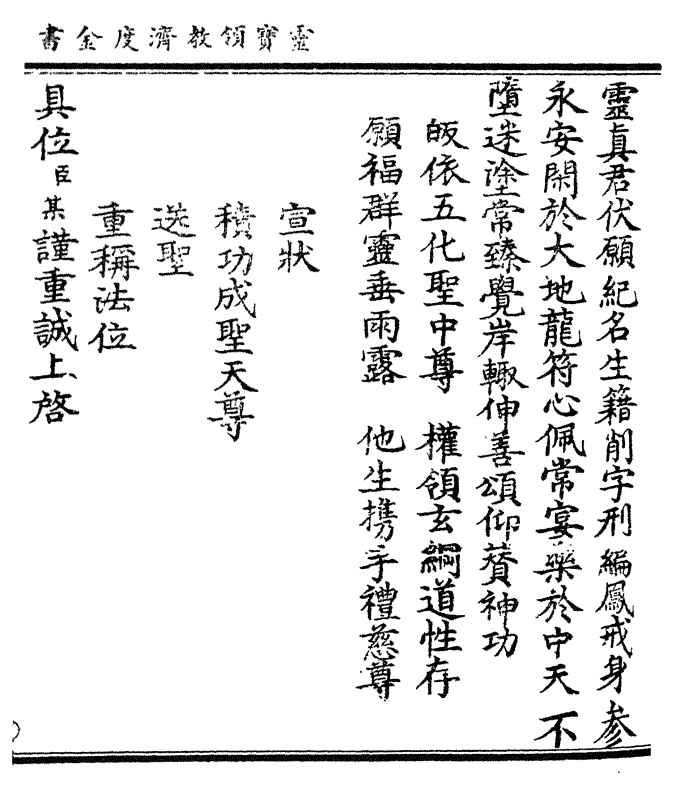 靈寶領教濟度金書
靈真君伏願紀名生籍削字刑編鳳戒身參
永安閑於大地龍符心佩常宴樂於中天不
墮迷塗常臻覺岸輙伸善頌仰賛神功
皈依五化聖中尊　權領玄綱道性存
願福群靈垂雨露　他生携手禮慈尊
宣狀
積功成聖天尊
送聖
重稱法位
具位臣某謹重誠上啓